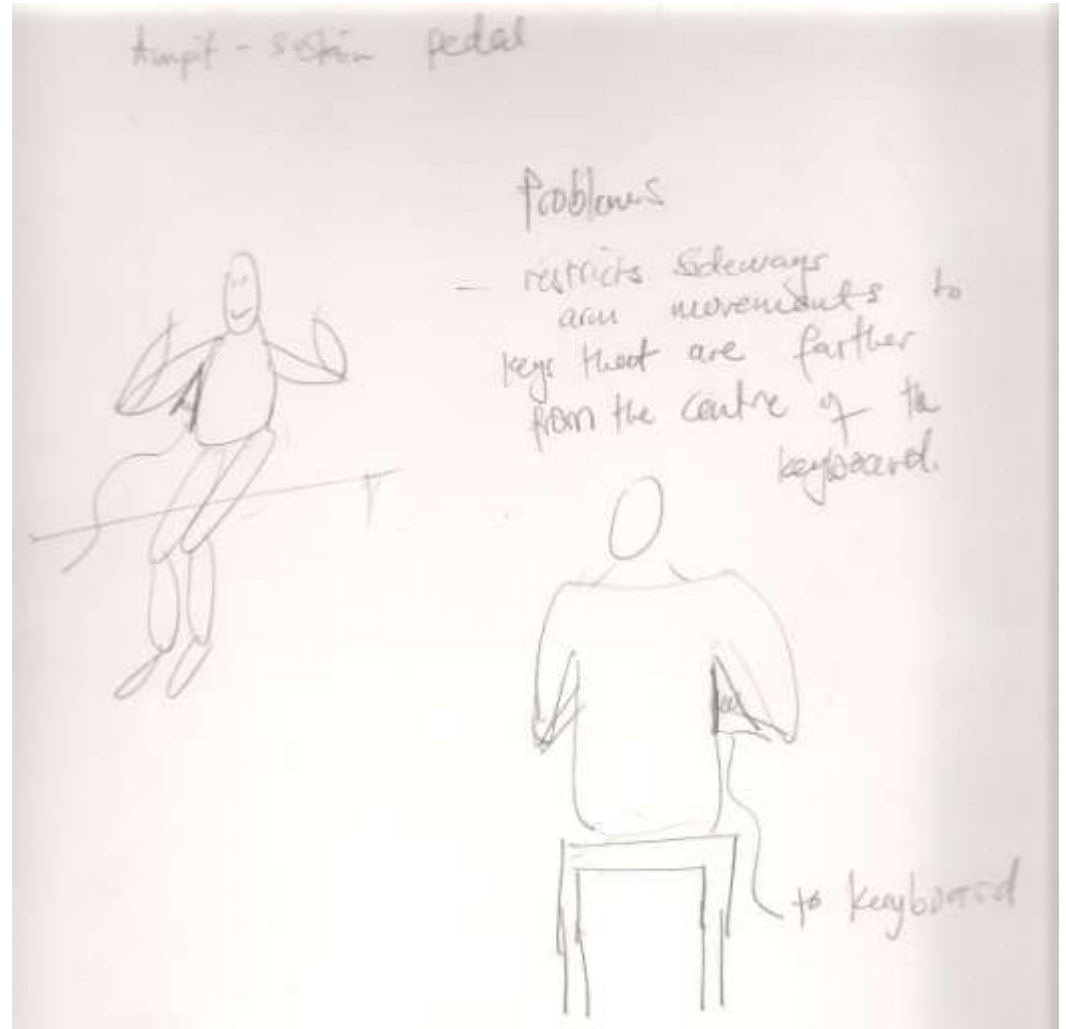 Armpit - sustain pedal
Problems
- restricts sideways
arm movements to
keys that are farther
from the centre of the
keyboard.
to keyboard